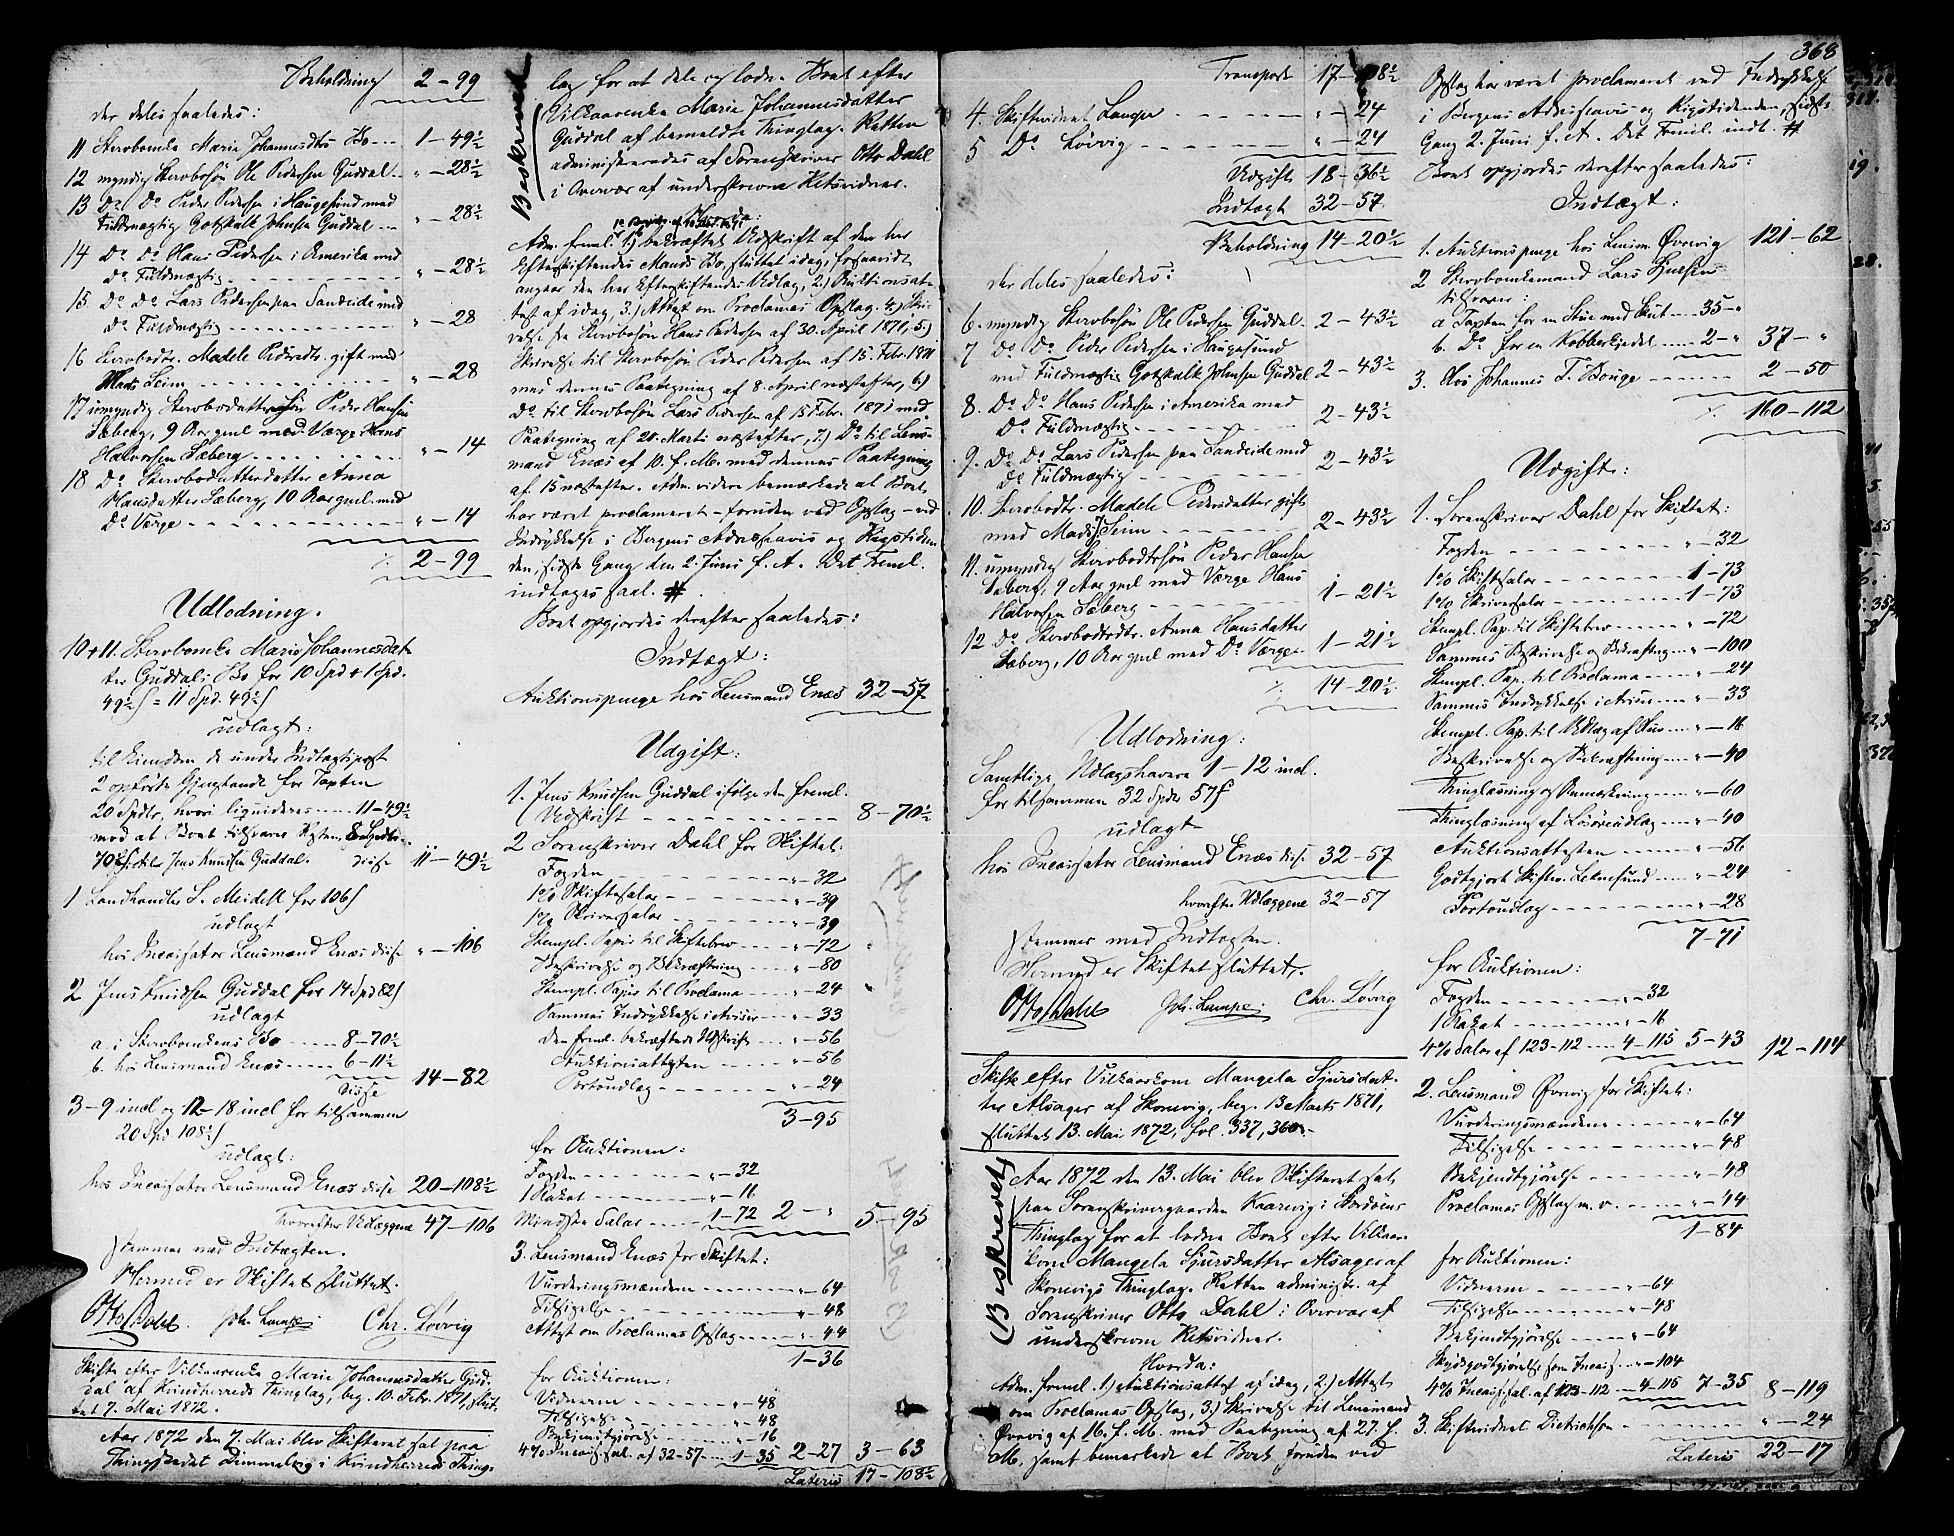 Beholdning 2-99
der deles saaledes:
11 Stervboenke Marie Johannesdtrs Bo 1-49½
12 myndig Stervbosøn Ole Pedersen Guddal " -28½
13 Do Do Peder Pedersen i Haugesund med
Fuldmægtig Gotskalk Johnsen Guddal " -28½
14 Do Do Hans Pedersen i Amerika med
Do Fuldmægtig " -28½
15 Do Do Lars Pedersen paa Sandeide med
Do Fuldmægtig " -28
16 Stervbodtr. Madele Pedersdtr. gift med
Mads Seim " -28
17 umyndig Stervbodattersøn Peder Hansen
Sæberg, 9 Aar gml. med Værge Hans
Halvorsen Sæberg " -14
18 Do Stervbodatterdatter Anna
Hansdatter Sæberg, 10 Aar gml. med
Do Værge " -14
2-99
Udlodning.
10+11. Stervboenke Marie Johannesdat-
ter Guddals Bo for 10 Spd + 1 Spd.
49½ ß = 11 Spd. 49½ ß
udlagt:
til Eiendom de under Indtægtspost
2 opførte Gjenstande for Taxten
20 Spdlr, hvori liquideres 11-49½
mod at Boet tilsvarer Resten, 8 Spdlr.
70½ ß til Jens Knudsen Guddal. disse 11-49½
1 Landhandler S. Meidell for 106 ß
udlagt
hos Incassator Lensmand Enæs disse " -106
2 Jens Knudsen Guddal for 14 Spd 82 ß
udlagt
a. i Stervboenkens Bo 8-70½
b. hos Lensmand Enæs 6-11½
disse 14-82
3-9 incl og 12-18 incl for tilsammen
20 Spd 108½ ß
udlagt:
hos Incassator Lensmand Enæs disse 20-108½
hvorefter Udlæggene 47-106
stemmer med Indtægten.
Hermed er Skiftet sluttet.
Otto Dahl. Joh. Lampe Chr. Løvvig
Skifte efter Vilkaarenke Marie Johannesdatter Gud-
dal af Kvindherreds Thinglag, beg. 10. Febr. 1871, slut-
tet 7. Mai 1872.
Aar 1872 den 7. Mai blev Skifteret sat paa
Thingstedet Dimmelsvig i Kvindherreds Thing-
Beskrevet
lag for at dele og lodne Boet efter
Vilkaarenke Marie Johannesdatter
Guddal af bemeldte Thinglag. Retten
administreredes af Sorenskriver Otto Dahl
i Overvær af underskrevne Retsvidner.
Hvorda:
Adm. freml. 1) bekræftet Udskrift af den her
Efterskiftendes Mands Bo, sluttet idag, forsaavidt
angaar den her Efterskiftendes Udlæg, 2) Auktionsat-
test af idag, 3.) Attest om Proclamas Opslag. 4.) Skri-
velse fra Stervbosøn Hans Pedersen af 30. April 1871, 5.)
Skrivelse til Stervbosøn Peder Pedersen af 15. Febr. 1871
med dennes Paategning af 8. April næstefter, 6.)
Do til Stervbosøn Lars Pedersen af 15 Febr. 1871 med
Paategning af 20. Marts næstefter, 7.) Do til Lens-
mand Enæs af 10. f. M. med dennes Paategning
af 15 næstefter. Adm. videre bemærkede at Boet
har været proclameret - foruden ved Opslag - ved
Indrykkelse i Bergens Adresseavis og Rigstiden-
den, sidste Gang den 2. Juni f. A. Det Freml.
indtages saal. #
Boet opgjordes derefter saaledes:
Indtægt:
Auktionspenge hos Lensmand Enæs 32-57
Udgift:
1. Jens Knudsen Guddal ifølge den freml.
Udskrift 8-70½
2 Sorenskriver Dahl for Skiftet:
Fogden " -32
1% Skiftesalær " -39
1% Skriversalær " -39
Stempl. Papir til Skiftebrev " -72
Beskrivelse og Bekræftning " -80
Stempl. Papir til Proclama " -24
Sammes Indrykkelse i Aviser " -33
den freml. bekræftede Udskrift " -56
Auktionsattesten " -56
Portoudlæg " -24
3-95
for Auktionen:
Fogden " -32
1 Plakat " -16
Mindste Salær 1-72 2- " 5-95
3. Lensmand Enæs for Skiftet:
Vurderingsmændene " -64
Tilsigelse " -48
Attest om Proclamas Opslag " -44
1-36
for Auktionen:
Vidnerne " -48
Tilsigelse " -48
Bekjendtgjørelse " -16
4% Incassosal. af 32-57 1-35 2-27 3-63
Lateris 17-108½
368
Transport 17-108½
4. Skifteridnet Lampe " -24
5 Do Løvvig " -24
Udgift 18-36½
Indtægt 32-57
Beholdning 14-20½
der deles saaledes:
6. myndig Stervbosøn Ole Pedersen Guddal 2-43½
7 Do Do Peder Pedersen i Haugesund
med Fuldmægtig Gotskalk Johnsen Guddal 2-43½
8. Do Do Hans Pedersen i Amerika med
Do Fuldmægtig 2-43½
9. Do Do Lars Pedersen paa Sandeide med
Do Fuldmægtig 2-43½
10. Stervbodtr. Madele Pedersdatter gift
med Mads Seim 2-43½
11. umyndig Stervbodtrsøn Peder Hansen
Sæberg, 9 Aar gml med Værge Hans
Halvorsen Sæberg 1-21½
12 Do Stervbodtrdtr. Anna Hansdatter
Sæberg, 10 Aar gml med Do Værge 1-21½
14-20½
Udlodning:
Samtlige Udlægshavere 1-12 incl.
for tilsammen 32 Spdlr 57 ß
udlagt
hos Incassator Lensmand Enæs disse 32-57
hvorefter Udlæggene 32-57
stemmer med Indtægten.
Hermed er Skiftet sluttet.
Otto Dahl Joh. Lampe Chr. Løvvig
Skifte efter Vilkaarskone Mangela Sjursdat-
ter Alsager af Skonevig, beg. 13 Marts 1871,
sluttet 13. Mai 1872, fol. 337, 360.
Beskrevet
Aar 1872 den 13. Mai blev Skifteret sat
paa Sorenskrivergaarden Kaarevig i Stordøens
Thinglag for at lodne Boet efter Vilkaars-
kone Mangela Sjursdatter Alsager af
Skonevigs Thinglag. Retten administr. af
Sorenskriver Otto Dahl i Overvær af
underskrevne Retsvidner.
Hvorda:
Adm. freml. 1.) Auktionsattest af idag, 2.) Attest
om Proclamas Opslag, 3.) Skrivelse til Lensmand
Øvrevig af 16. f. M. med Paategning af 27. f.
M., samt bemærkede at Boet foruden ved
Opslag har været proclameret ved Indrykkelse
i Bergens Adresseavis og Rigstidenden, sidste
Gang 2. Juni f. A. Det Freml. indt. #
Boet opgjordes derefter saaledes:
Indtægt:
1. Auktionspenge hos Lensm. Øvrevig 121-62
2 Stervboenkemand Lars Sjursen
tilsvarer:
a Taxten for en Stue med Skut 35- "
b. Do for en Kobberkjedel 2- " 37- "
3. Hos Johannes T. Bouge 2-50
160-112
Udgift:
1. Sorenskriver Dahl for Skiftet:
Fogden " -32
1% Skiftesalær 1-73
1% Skriversalær 1-73
Stempl. Pap. til Skiftebrev " -72
Sammes Beskrivelse og Bekræftng " -100
Stempl. Pap. til Proclama " -24
Sammes Indrykkelse i Aviser " -33
Stempl. Pap. til Udlæg af Hus " -18
Beskrivelse og Bekræftning " -40
Thinglæsning og Anmærkning " -60
Thinglæsning af Løsøreudlæg " -40
Auktionsattesten " -56
Godtgjort Skiftev. Lekvesund " -24
Portoudlæg " -28
7-71
for Auktionen:
Fogden " -32
1 Plakat " -16
4% Salær af 123-112 4-115 5-43 12-114
2. Lensmand Øvrevig for Skiftet:
Vurderingsmændene " -64
Tilsigelse " -48
Bekjendtgjørelse " -48
Proclamas Opslag m. v. " -44
1-84
for Auktionen:
Vidnerne " -64
Tilsigelse " -48
Bekjendtgjørelse " -64
Skydsgodtgjørelse som Incass. " -104
4% Incassosal. af 123-112 4-115 7-35 8-119
3. Skifteridnet Dietrichson " -24
Lateris 22-17